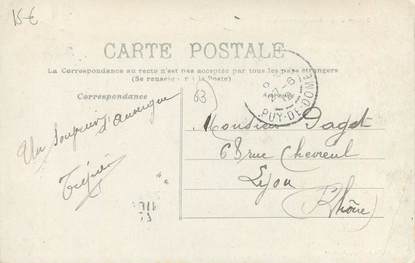 15€
CARTE POSTALE
La Correspondance au recto n'est pas acceptée par tous les pays étrangers
(Se renseigner à la Poste)
Correspondance
63
PUY-DE-DOME
Un
d'auvergne
Monsieur Paget
68 rue Chevreul
Lyon
(Rhône)